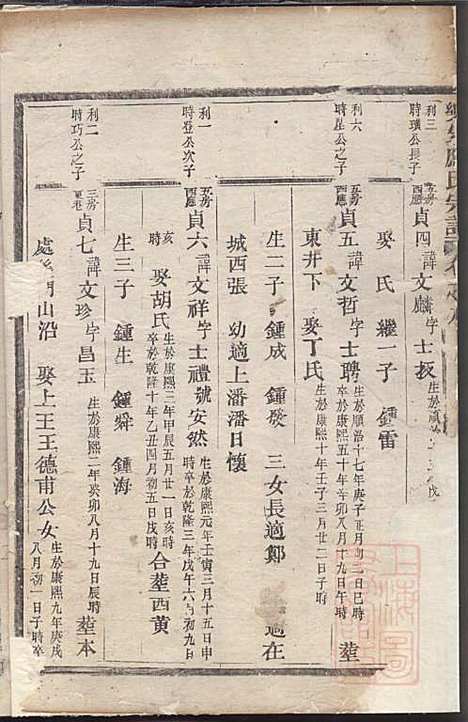 利三
時璜公長子
五房西廳
貞四諱文麟字士扳生於順治
娶氏繼二子鍾雷
利六
時星公之子
五房西廳
貞五諱文哲字士聘
生於順治十七年庚子正月初二日巳時
卒於康熙五十年辛卯八月十九日午時
葬
東井下娶丁氏
生於康熙十年
子三月廿二日子時
生二子鍾成鍾發三女長適鄭適在
城西張幼適上潘潘日懷
利一
時登公次子
五房西廳
貞六諱文祥字士禮號安然
生於康熙元年壬寅三月十五日申
時卒於乾隆三年戊午六月初九日
亥時
娶胡氏
生於康熙三年甲辰五月廿一日亥時
卒於乾隆十年乙丑四月初五日戌時
合葬西黃
生三子鍾生鍾舜鍾海
利二
時巧公之子
三房
貞七諱文珍字昌玉
生於康熙二年癸卯八月十九日辰時
葬本
處後門山沿娶上王王德甫公女
生於康熙九年庚戌
八月初一日子時卒